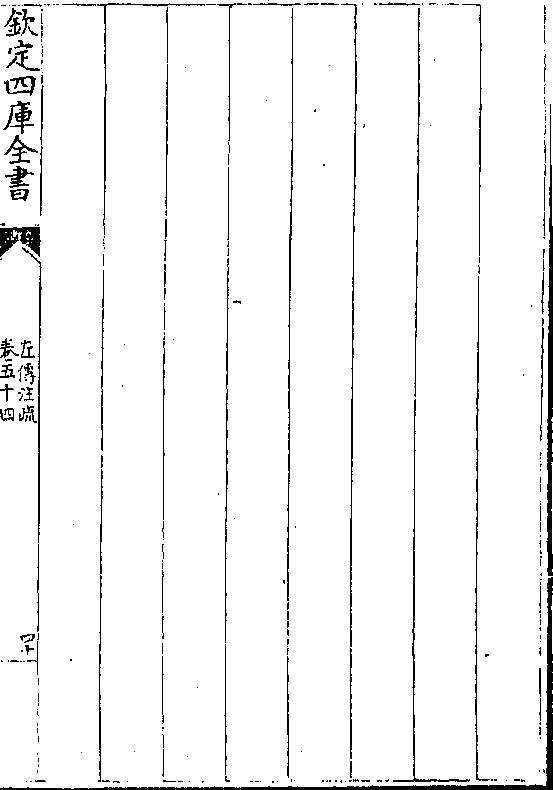 欽定四庫全書
左傳注疏
卷五十四
四十